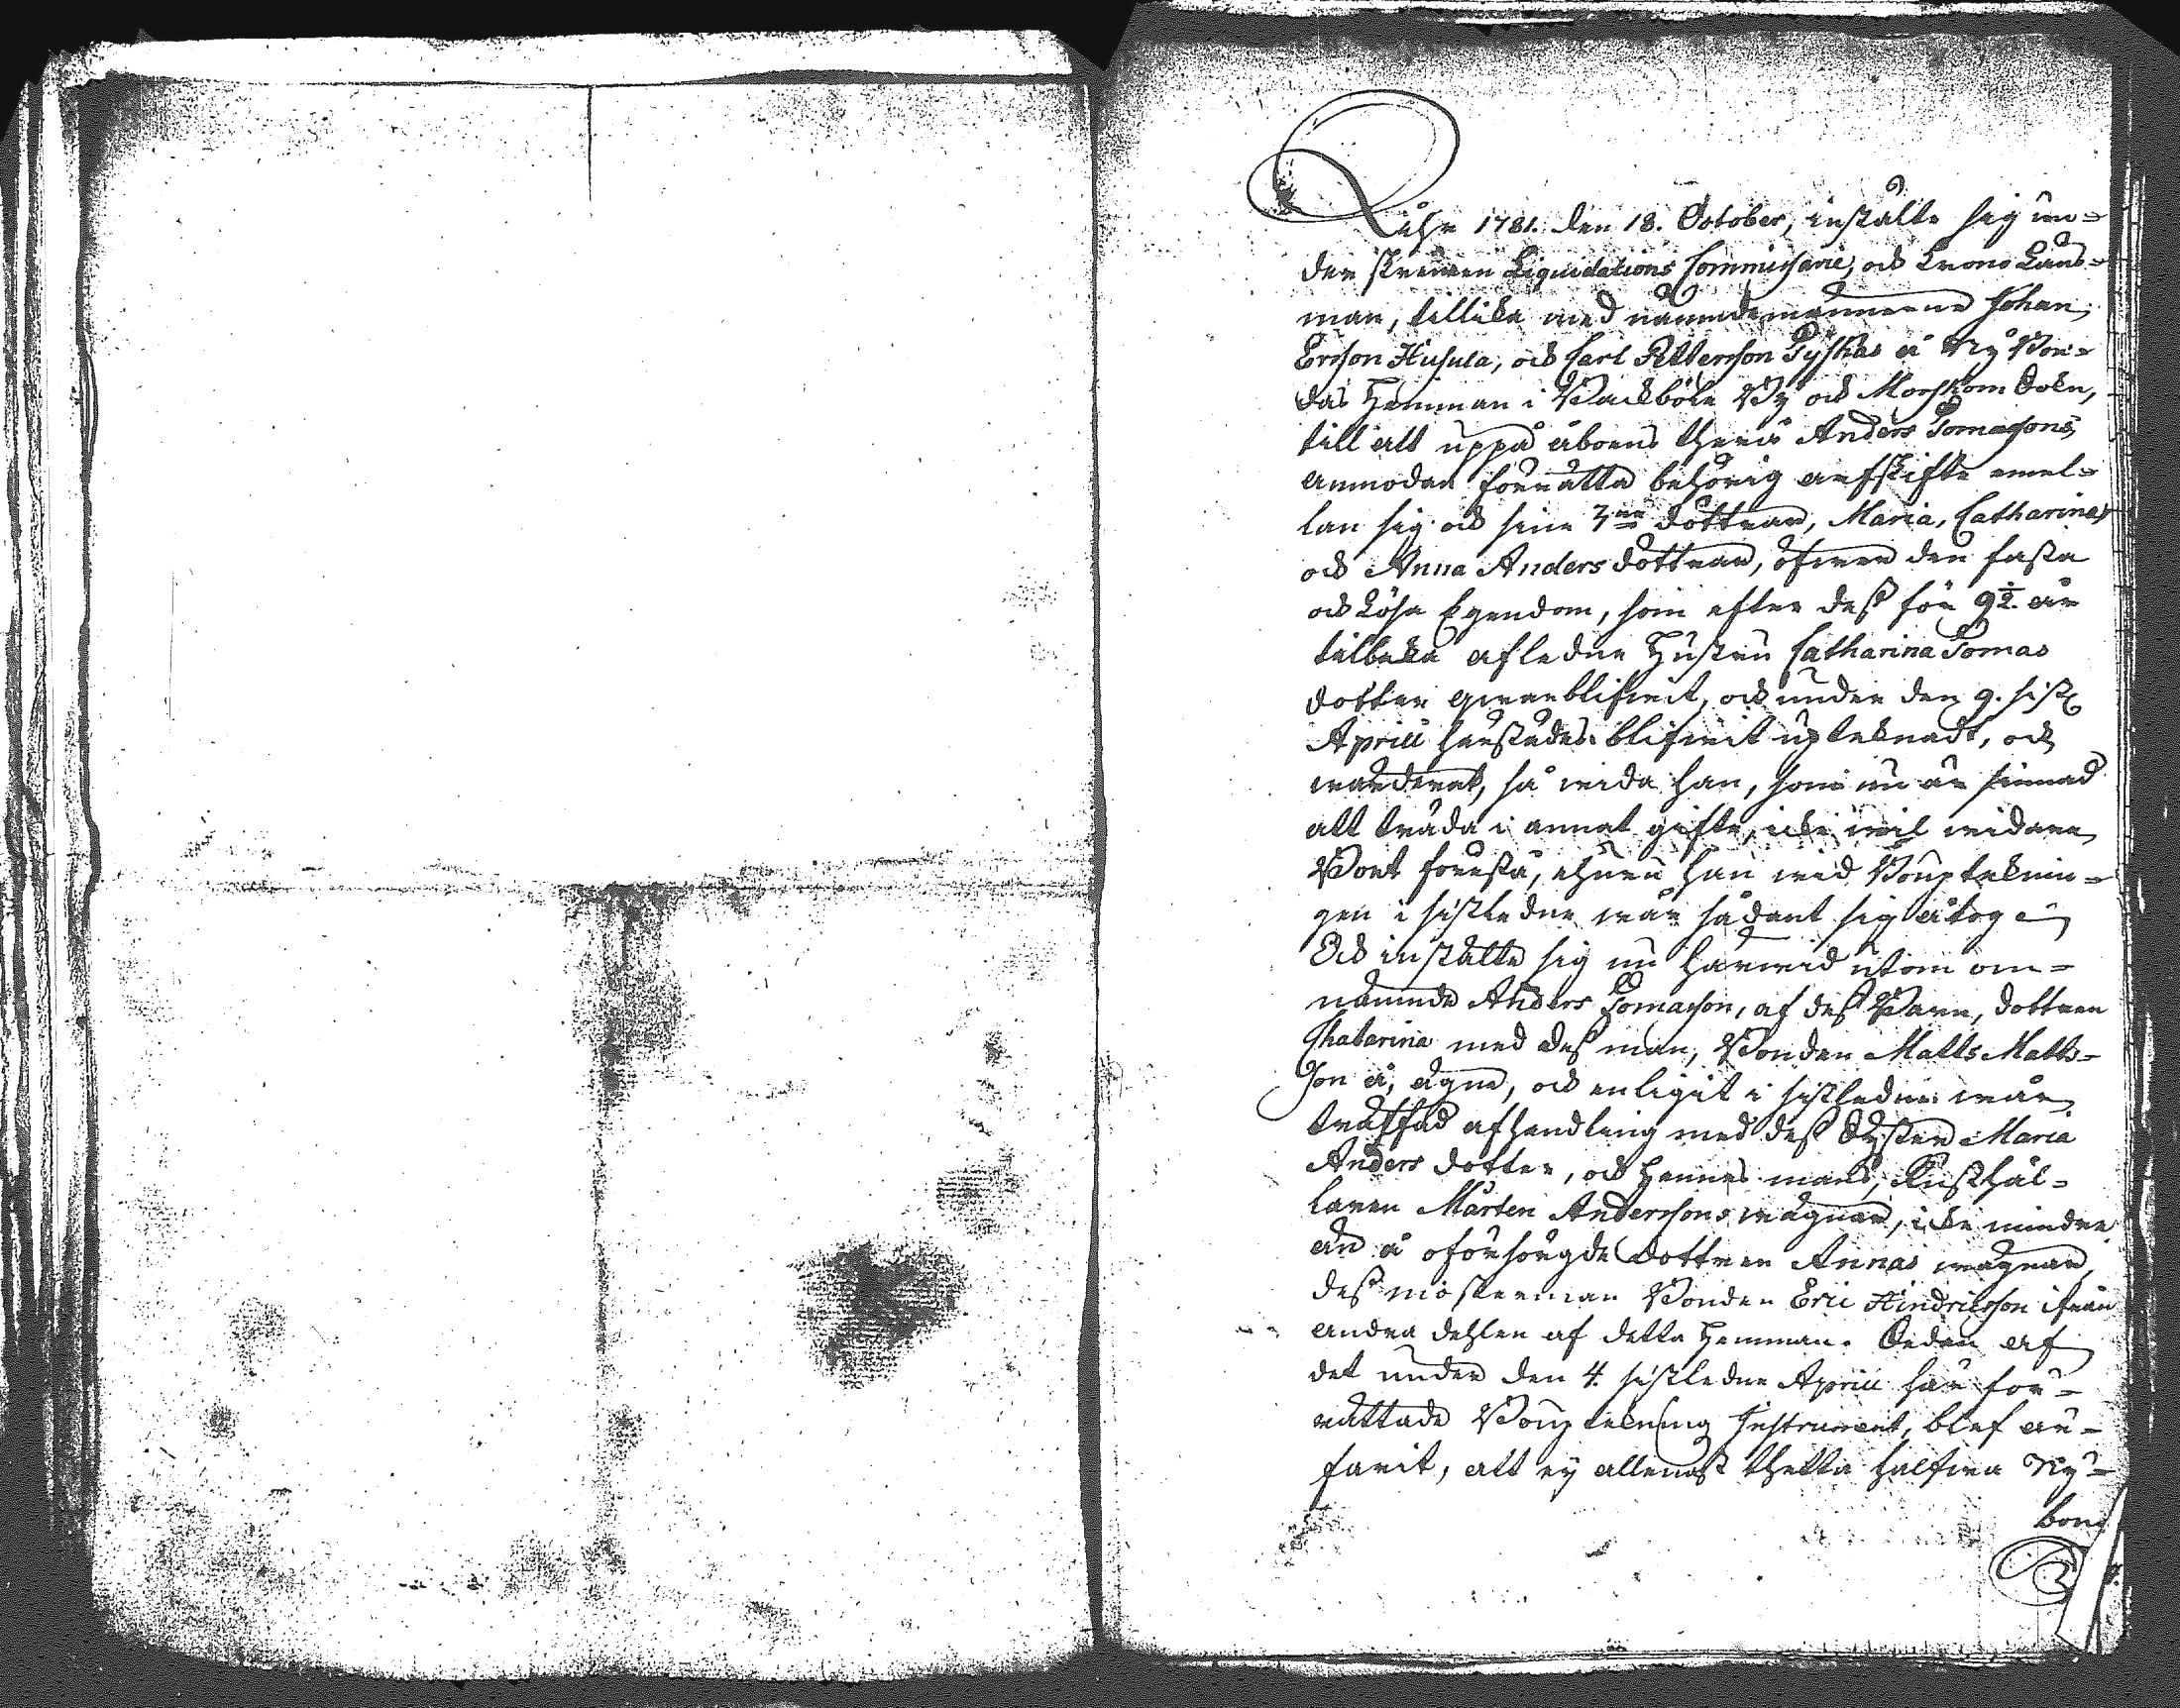 Åhr 1781. den 18. October, instälte sig un-
derskrefwen Liquidations Commissarie, och Crono Läns-
man, tillika med nämndemännerne Johan
Ersson Husula, och Carl Pettersson Tyskas å Nybon-
das Hemman i Backböle By och Morskom Sokn,
till att uppå åboens therå Anders Tomassons
anmodan förrätta behörig arfskifte emel-
lan sig och sine 3ne döttrar, Maria, Catharina
och Anna Anders döttrar, öfwer den fasta
och Lösa Egendom, som efter dess för 9 1/2. år
tilbaka afledne Hustru Catharina Tomas
dotter qwarblifwit, och under den 9. sistl.
Aprill härstädes blifwit upteknadt, och
wärderat, så wida han, som nu är sinnad
att träda i annat gifte, icke wil widare
Boet förestå, ehuru han wid Boupteknin-
gen i sistledne wår sådant sig åtog
Och instälte sig nu härwid utom om-
nämnde Anders Tomasson, af dess Barn, dottren
Chatarina med dess man, Bonden Matts Matts-
son å, ägne, och enligit i sistledne wår
träffad afhandling med dess Syster Maria
Anders dotter, och Hennes mans, Rusthål-
laren Mårten Anderssons wägnar, icke mindre
än å oförsörgde dottren Annas wägnar,
dess mosterman Bonden Eric Hindricsson ifrån
andra dehlen af detta Hemman. Sedan af
det under den 4. sistledne Aprill här för-
rättade Bouptekning Instrument, blef er-
farit, att ej allenast thetta halfwa Ny-
bon